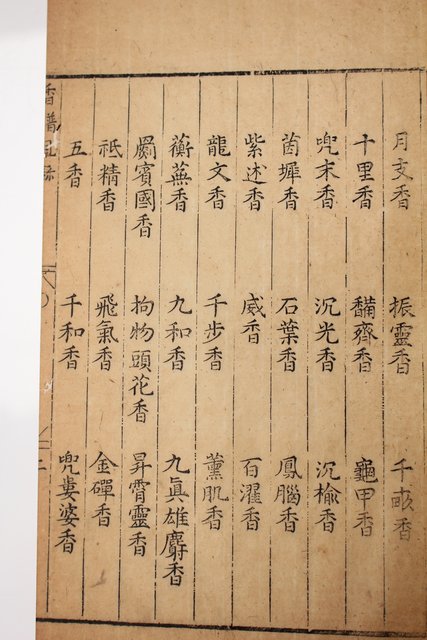 月支香 振靈香 千畝香
十里香 齊香 龜甲香
兜末香 沉光香 沉榆香
茵墀香 石葉香 鳳腦香
紫述香 威香 百濯香
龍文香 千步香 薰肌香
蘅蕪香 九和香 九眞雄麝香
罽賓國香 拘物頭花香 昇霄靈香
祗精香 飛氣香 金磾香
五香 千和香 兜婁婆香
香譜